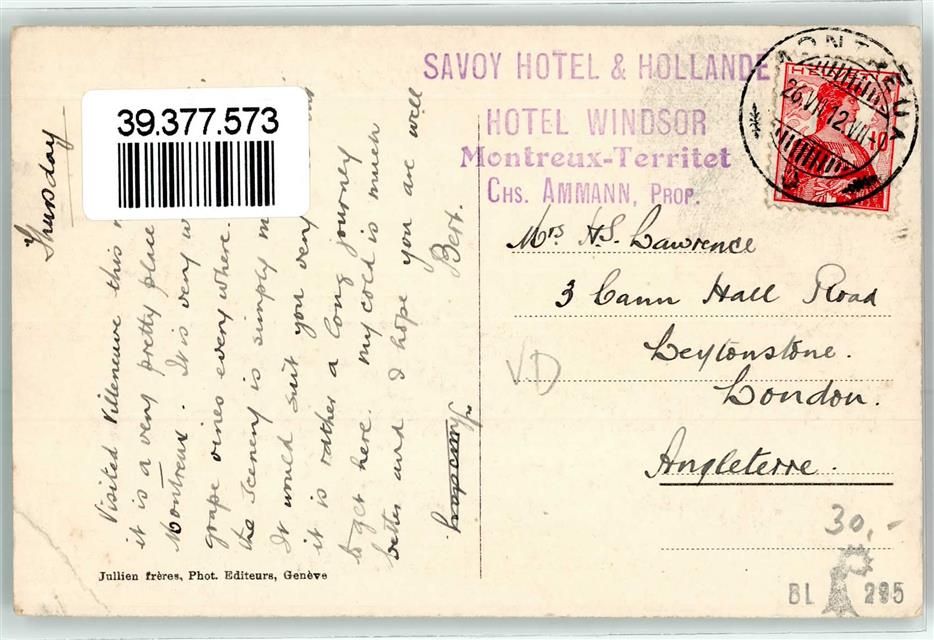 39.377.573
SAVOY HOTEL & HOLLANDE
HOTEL WINDSOR
Montreux-Territet
CHS. AMMANN, PROP.
MONTREUX
26.VII.12.VII
HELVETIA
Thursday
Visited Villeneuve this
it is a very pretty place
Montreux. It is very
grape vines every where.
the Scenery is simply
It would suit you very
it is rather a long journey
to get here. my cold is much
better and I hope you are well
Bert.
Mrs H.S. Lawrence
3 Cann Hall Road
Leytonstone.
London.
Angleterre.
VD
30,-
Jullien frères, Phot. Editeurs, Genève
BL 295